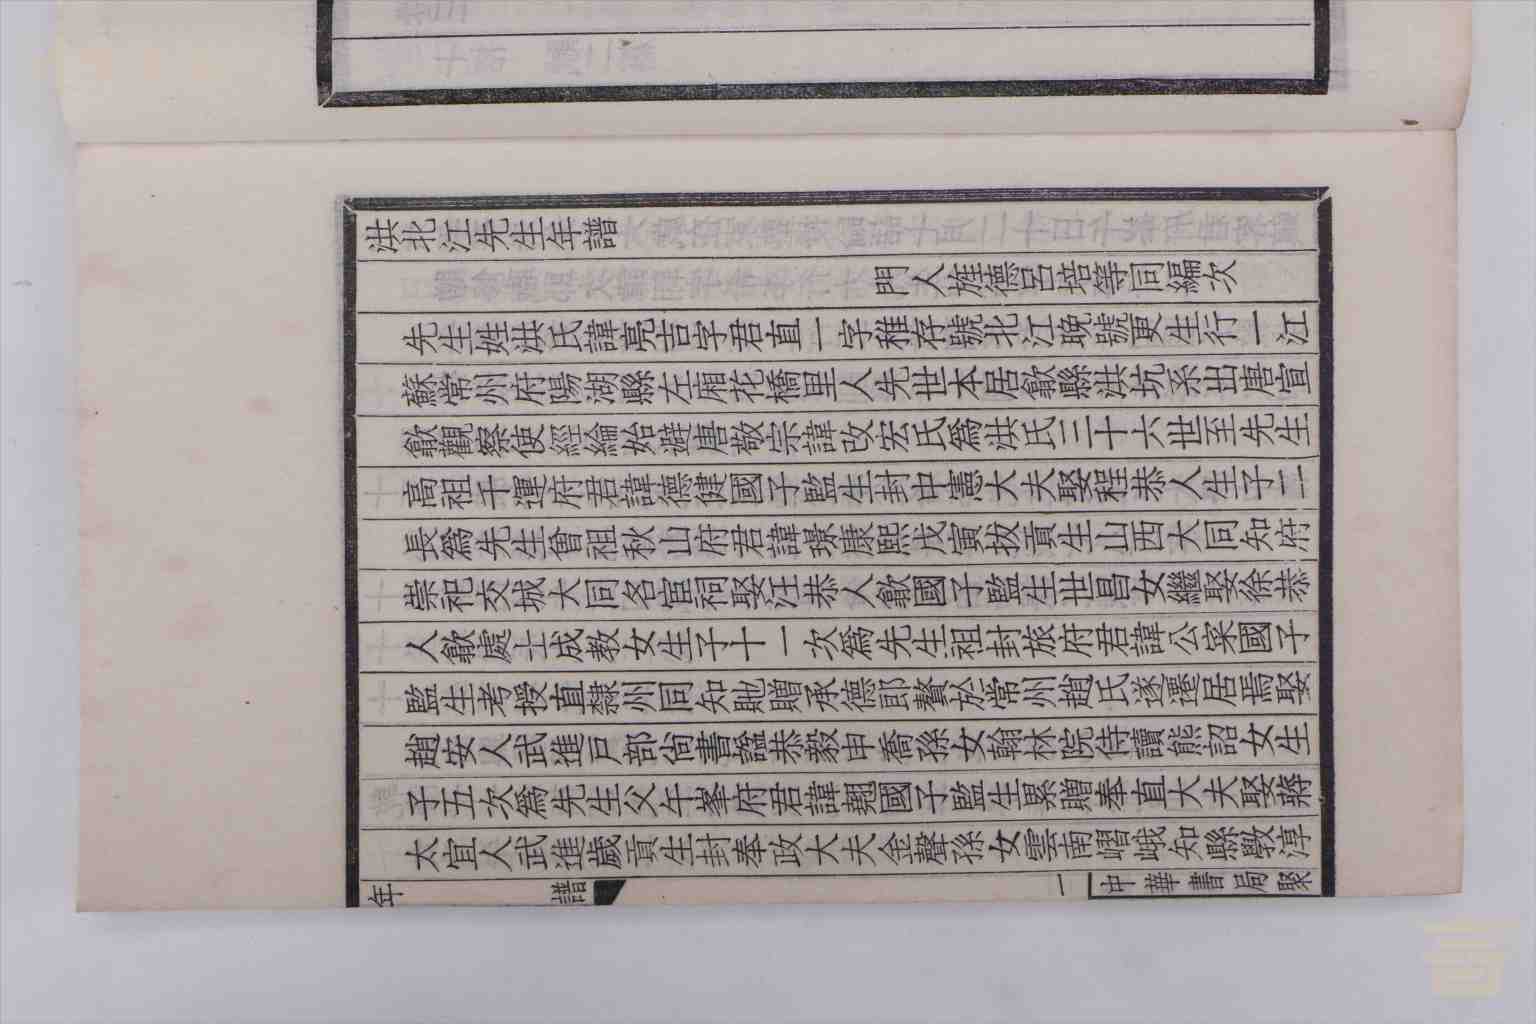 洪北江先生年譜
門人旌德呂培等同編次
先生姓洪氏諱亮吉字君直一字稚存號北江晚號更生行一江
蘇常州府陽湖縣左廂花橋里人先世本居歙縣洪坑系出唐宣
歙觀察使經綸始避唐敬宗諱改宏氏爲洪氏三十六世至先生
高祖千運府君諱德健國子監生封中憲大夫娶程恭人生子二
長爲先生曾祖秋山府君諱璟康熙戊寅拔貢生山西大同知府
崇祀交城大同名宦祠娶汪恭人歙國子監生世昌女繼娶徐恭
人歙處士成教女生子十一次爲先生祖封旅府君諱公寀國子
監生考授直隸州同知貤贈承德郎贅於常州趙氏遂遷居焉娶
趙安人武進戶部尚書諡恭毅申喬孫女翰林院侍讀熊詔女生
子五次爲先生父午峯府君諱翹國子監生累贈奉直大夫娶蔣
太宜人武進歲貢生封奉政大夫金聲孫女雲南嶍峨知縣斅淳
年譜 一 中華書局聚